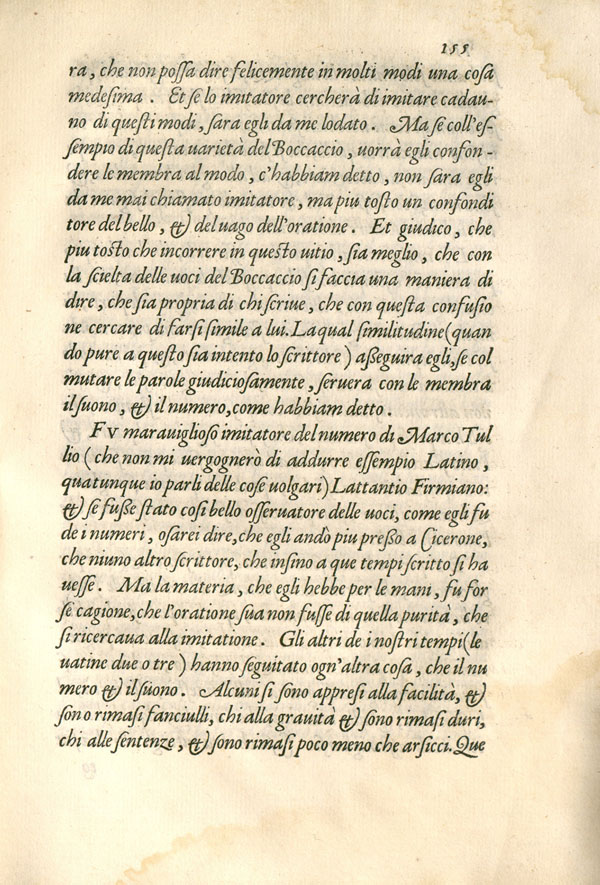 155
ra, che non possa dire felicemente in molti modi una cosa
medesima. Et se lo imitatore cercherà di imitare cadau-
no di questi modi, sara egli da me lodato. Ma se coll'es-
sempio di questa uarietà del Boccaccio, uorrà egli confon-
dere le membra al modo, c'habbiam detto, non sara egli
da me mai chiamato imitatore, ma piu tosto un confondi
tore del bello, & del uago dell'oratione. Et giudico, che
piu tosto che incorrere in questo uitio, sia meglio, che con
la scielta delle uoci del Boccaccio si faccia una maniera di
dire, che sia propria di chi scriue, che con questa confusio
ne cercare di farsi simile a lui. La qual similitudine (quan
do pure a questo sia intento lo scrittore) asseguira egli, se col
mutare le parole giudiciosamente, seruera con le membra
il suono, & il numero, come habbiam detto.
FV marauiglioso imitatore del numero di Marco Tul
lio (che non mi uergognerò di addurre essempio Latino,
quatunque io parli delle cose uolgari) Lattantio Firmiano:
& se fusse stato cosi bello osseruatore delle uoci, come egli fu
de i numeri, osarei dire, che egli andò piu presso a Cicerone,
che niuno altro scrittore, che insino a que tempi scritto si ha
uesse. Ma la materia, che egli hebbe per le mani, fu for
se cagione, che l'oratione sua non fusse di quella purità, che
si ricercaua alla imitatione. Gli altri de i nostri tempi (le
uatine due o tre) hanno seguitato ogn'altra cosa, che il nu
mero & il suono. Alcuni si sono appresi alla facilità, &
sono rimasi fanciulli, chi alla grauità & sono rimasi duri,
chi alle sentenze, & sono rimasi poco meno che arsicci. Que